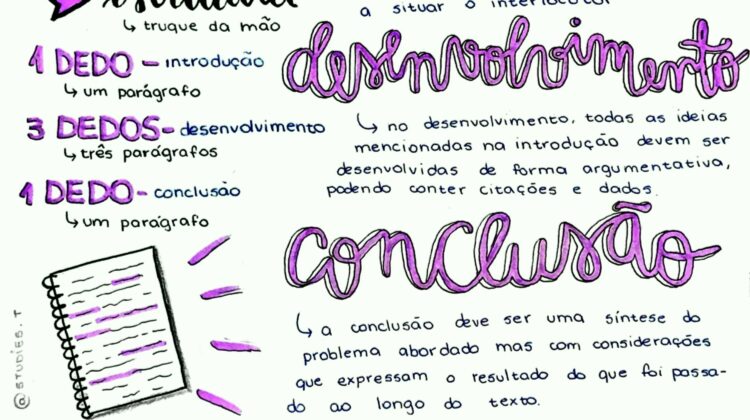 ↳ truque da mão
1 DEDO - introdução
↳ um parágrafo
3 DEDOS - desenvolvimento
↳ três parágrafos
1 DEDO - conclusão
↳ um parágrafo
@STUDIES.T
a situar o interlocutor
desenvolvimento
↳ no desenvolvimento, todas as ideias
mencionadas na introdução devem ser
desenvolvidas de forma argumentativa,
podendo conter citações e dados.
conclusão
↳ a conclusão deve ser uma síntese do
problema abordado mas com considerações
que expressam o resultado do que foi passa-
do ao longo do texto.